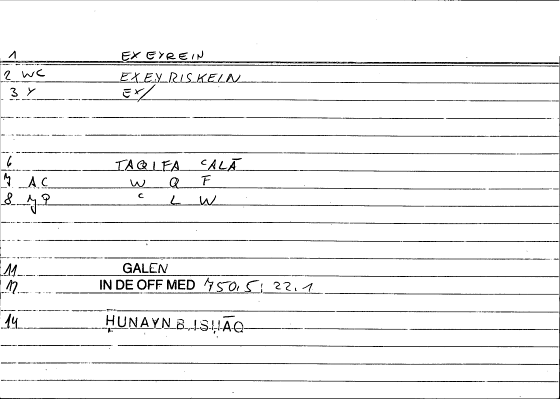 1 EXEYREIN
2 WC EXEYRISKEIN
3 Y EX/
6 TAQIFA ʿALĀ
7 AC W Q F
8 ʿ L W
11 GALEN
12 IN DE OFF MED 750,5; 22.1
14 ḤUNAYN B.ISḤĀQ